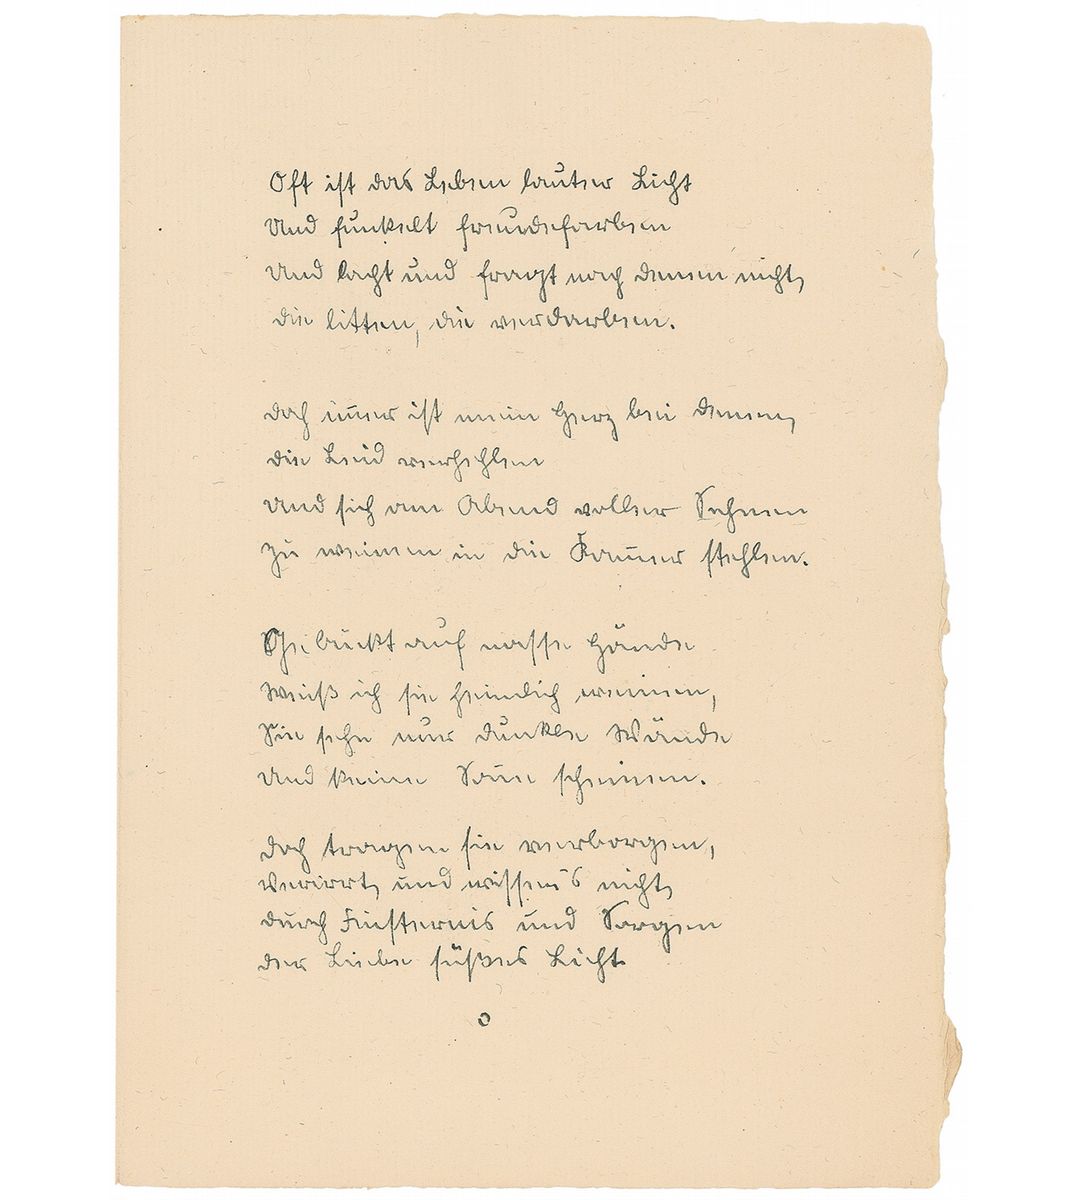 Oft ist das Leben lauter Licht
Und funkelt freudefarben
Und lacht und fragt nach denen nicht,
die litten, die verdarben.
Doch im̅er ist mein Herz bei denen,
die Leid verhehlen
Und sich am Abend voller Sehnen
Zu weinen in die Kam̅er stehlen.
Gebückt auf nasse Hände
Weiß ich sie heimlich weinen,
Sie sehn nur dunkle Wände
Und keine Son̅e scheinen.
Doch tragen sie verborgen,
Verirrt, und wissen's nicht,
durch Finsternis und Sorgen
der Liebe süßes Licht.